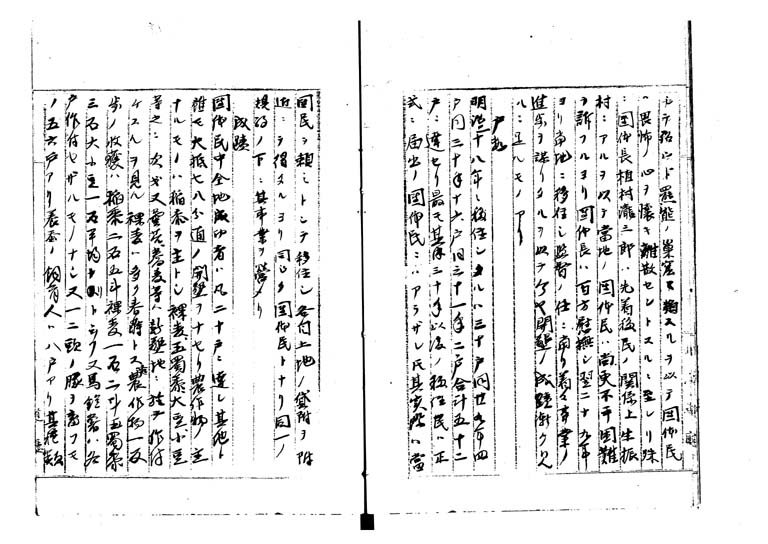 シテ殆ンド羆熊ノ巣窟タルヲ以テ団体民
ハ畏怖ノ心ヲ懐キ離散セントスルニ至レリ殊
ニ団体長植村瀧三郎ハ先着後民ノ関係上生振
村ニアルヲ以テ当地ノ団体民ハ尚更不平困難
ヲ訴フルヨリ団体長ハ百方慰撫シ翌二十九年
ヨリ当地ニ移住シ監督ノ任ニ当リ着々事業ノ
進歩ヲ謀リタルヲ以テ今ヤ開墾ノ成蹟漸ク見
ルニ足ルモノアリ
戸数
明治二十八年ニ移住シタルハ三十戸同廿九年四
戸同三十年十六戸同三十一年二戸合計五十二
戸ニ達セリ最モ其后三十年以後ノ移住民ハ正
式ニ届出ノ団体民ニハアラザレ氏其実際ハ当
団民ヲ頼ミトシテ移住シ各付上地ノ貸附ヲ附
近ニテ得タルヨリ同シク団体民トナリ同一ノ
規約ノ下ニ其事業ヲ営メリ
成蹟
団体民中全地成功者ハ凡二十戸ニ達シ其他ト
雖モ大抵七八分通ノ開墾ヲナセリ農作物ノ主
ナルモノハ稲黍ヲ主トシ裸麦玉蜀黍大豆小豆
等之ニ次グ又蕎麦等ハ新墾地ニ於テ作付
ケスルヲ見ル裸麦ハ多ク春蒔トス農作物一反
歩ノ収穫ハ稲黍二石五斗裸麦一石二斗玉蜀黍
三石大小豆一石平均トシ又馬鈴薯ハ各
戸作付セザルモノナシ又一二頭ノ豚ヲ畜フモ
ノ五六戸アリ養蚕ノ飼育人ハ八戸アリ其種類